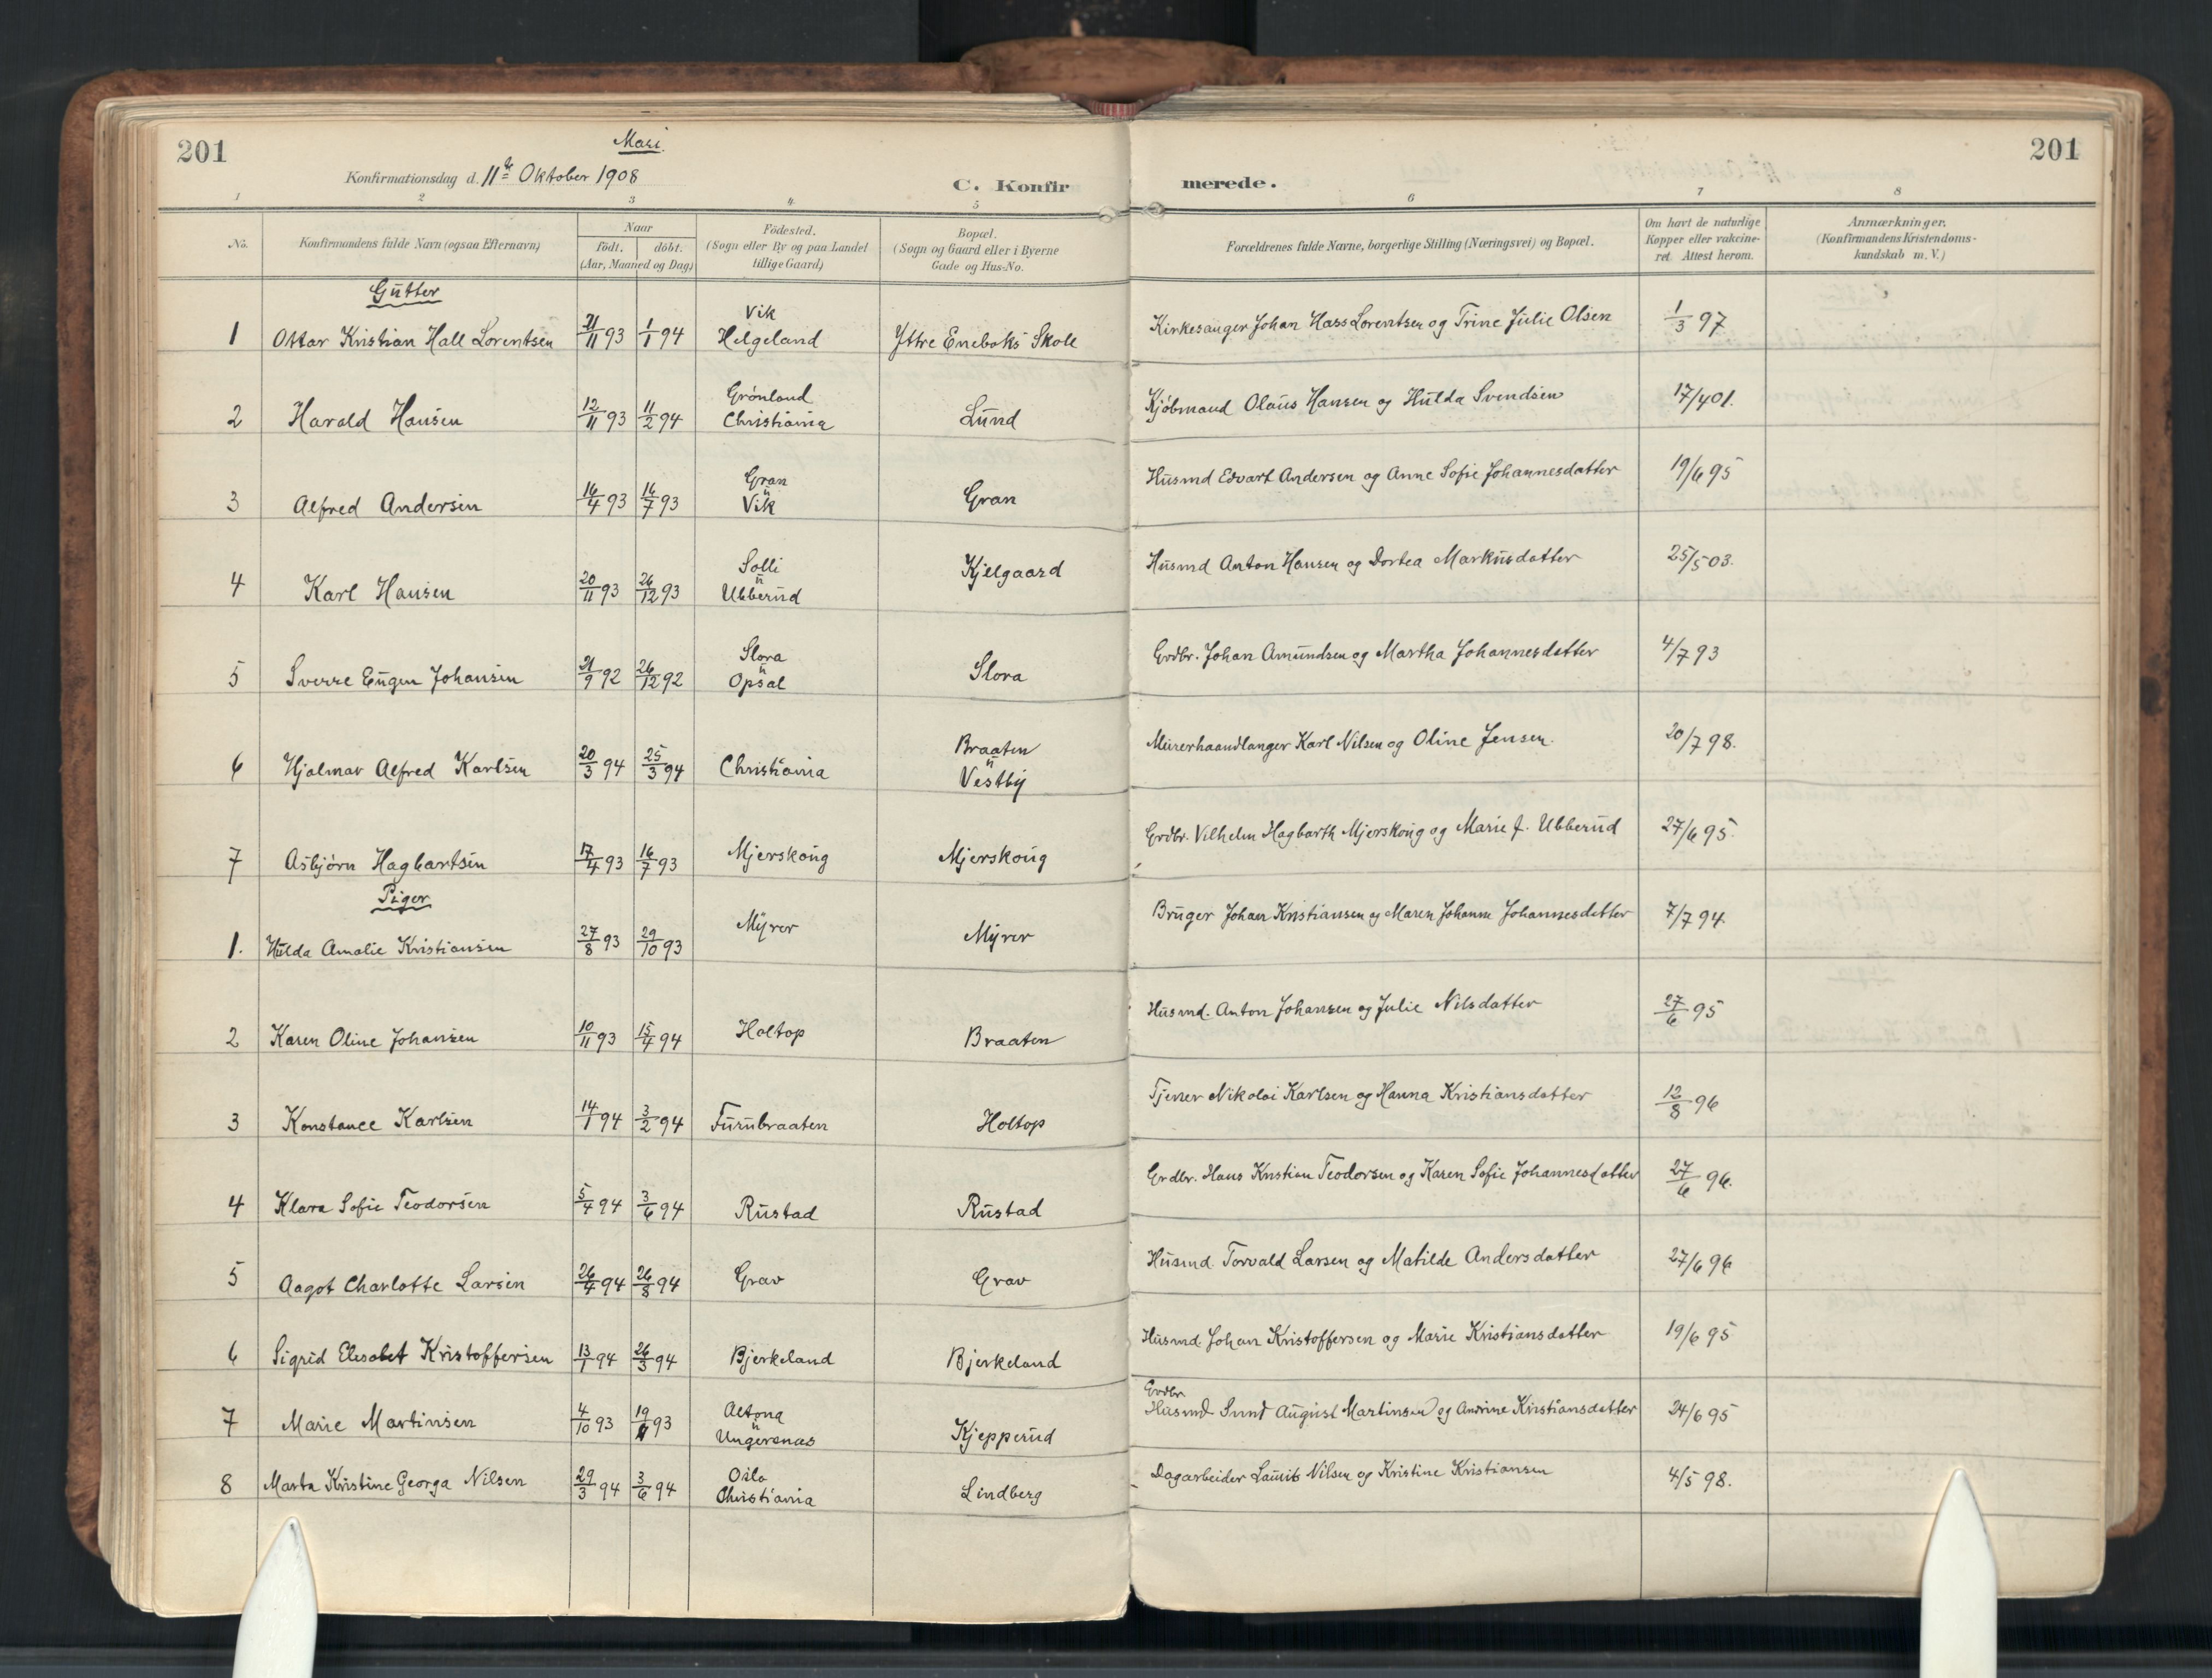 201
Mari.
Konfirmationsdag d. 11te Oktober 1908
C. Konfirmerede.
201
1 2 3 4 5 6 7 8
No. Konfirmandens fulde Navn (ogsaa Efternavn) Naar født. døbt. (Aar, Maaned og Dag) Fødested. (Sogn eller By og paa Landet tillige Gaard) Bopæl. (Sogn og Gaard eller i Byerne Gade og Hus-No. Forældrenes fulde Navne, borgerlige Stilling (Næringsvei) og Bopæl. Om havt de naturlige Kopper eller vakcineret. Attest herom. Anmærkninger. (Konfirmandens Kristendomskundskab m. V.)
Gutter
1 Ottar Kristian Hall Lorentsen 21/11 93 1/1 94 Vik Helgeland Yttre Enebaks Skole Kirkesanger Johan Hass Lorentsen og Trine Julie Olsen 1/3 97
2 Harald Hansen 12/11 93 11/2 94 Grønland Christiania Lund Kjøbmand Olaus Hansen og Hulda Svendsen 17/4 01.
3 Alfred Andersen 16/4 93 16/7 93 Gran u Vik Gran Husmd Edvart Andersen og Anne Sofie Johannesdatter 19/6 95
4 Karl Hansen 20/11 93 26/12 93 Solli u Ubberud Kjelgaard Husmd Anton Hansen og Dortea Markusdatter 25/5 03.
5 Sverre Eugen Johansen 21/9 92 26/12 92 Slora u Opsal Slora Grdbr. Johan Amundsen og Martha Johannesdatter 4/7 93
6 Hjalmar Alfred Karlsen 20/3 94 25/3 94 Christiania Braaten u Vestby Murerhaandlanger Karl Nilsen og Oline Jensen. 20/7 98.
7 Asbjørn Hagbartsen 17/4 93 16/7 93 Mjerskoug Mjerskoug Grdbr. Vilhelm Hagbarth Mjerskoug og Marie J. Ubberud 27/6 95.
Piger
1. Hulda Amalie Kristiansen 27/8 93 29/10 93 Myrer Myrer Bruger Johan Kristiansen og Maren Johanne Johannesdatter 7/7 94
2 Karen Oline Johansen 10/11 93 15/4 94 Holtop Braaten Husmd. Anton Johansen og Julie Nilsdatter 27/6 95
3 Konstance Karlsen 14/1 94 3/2 94 Furubraaten Holtop Tjener Nikolai Karlsen og Hanna Kristiansdatter 12/8 96
4 Klara Sofie Teodorsen 5/4 94 3/6 94 Rustad Rustad Grdbr. Hans Kristian Teodorsen og Karen Sofie Johannesdatter 27/6 96.
5 Aagot Charlotte Larsen 26/4 94 26/8 94 Grav Grav Husmd. Torvald Larsen og Matilde Andersdatter 27/6 96
6 Sigrid Elisabet Kristoffersen 13/1 94 26/3 94 Bjerkeland Bjerkeland Husmd. Johan Kristoffersen og Marie Kristiansdatter 19/6 95
7 Marie Martinsen 4/10 93 19/11 93 Altona u Ungersnæs Kjepperud Grdbr. Husmd August Martinsen og Andrine Kristiansdatter 24/6 95
8 Marta Kristine Georga Nilsen 29/3 94 3/6 94 Oslo Christiania Lindberg Dagarbeider Laurits Nilsen og Kristine Kristiansen 4/5 98.